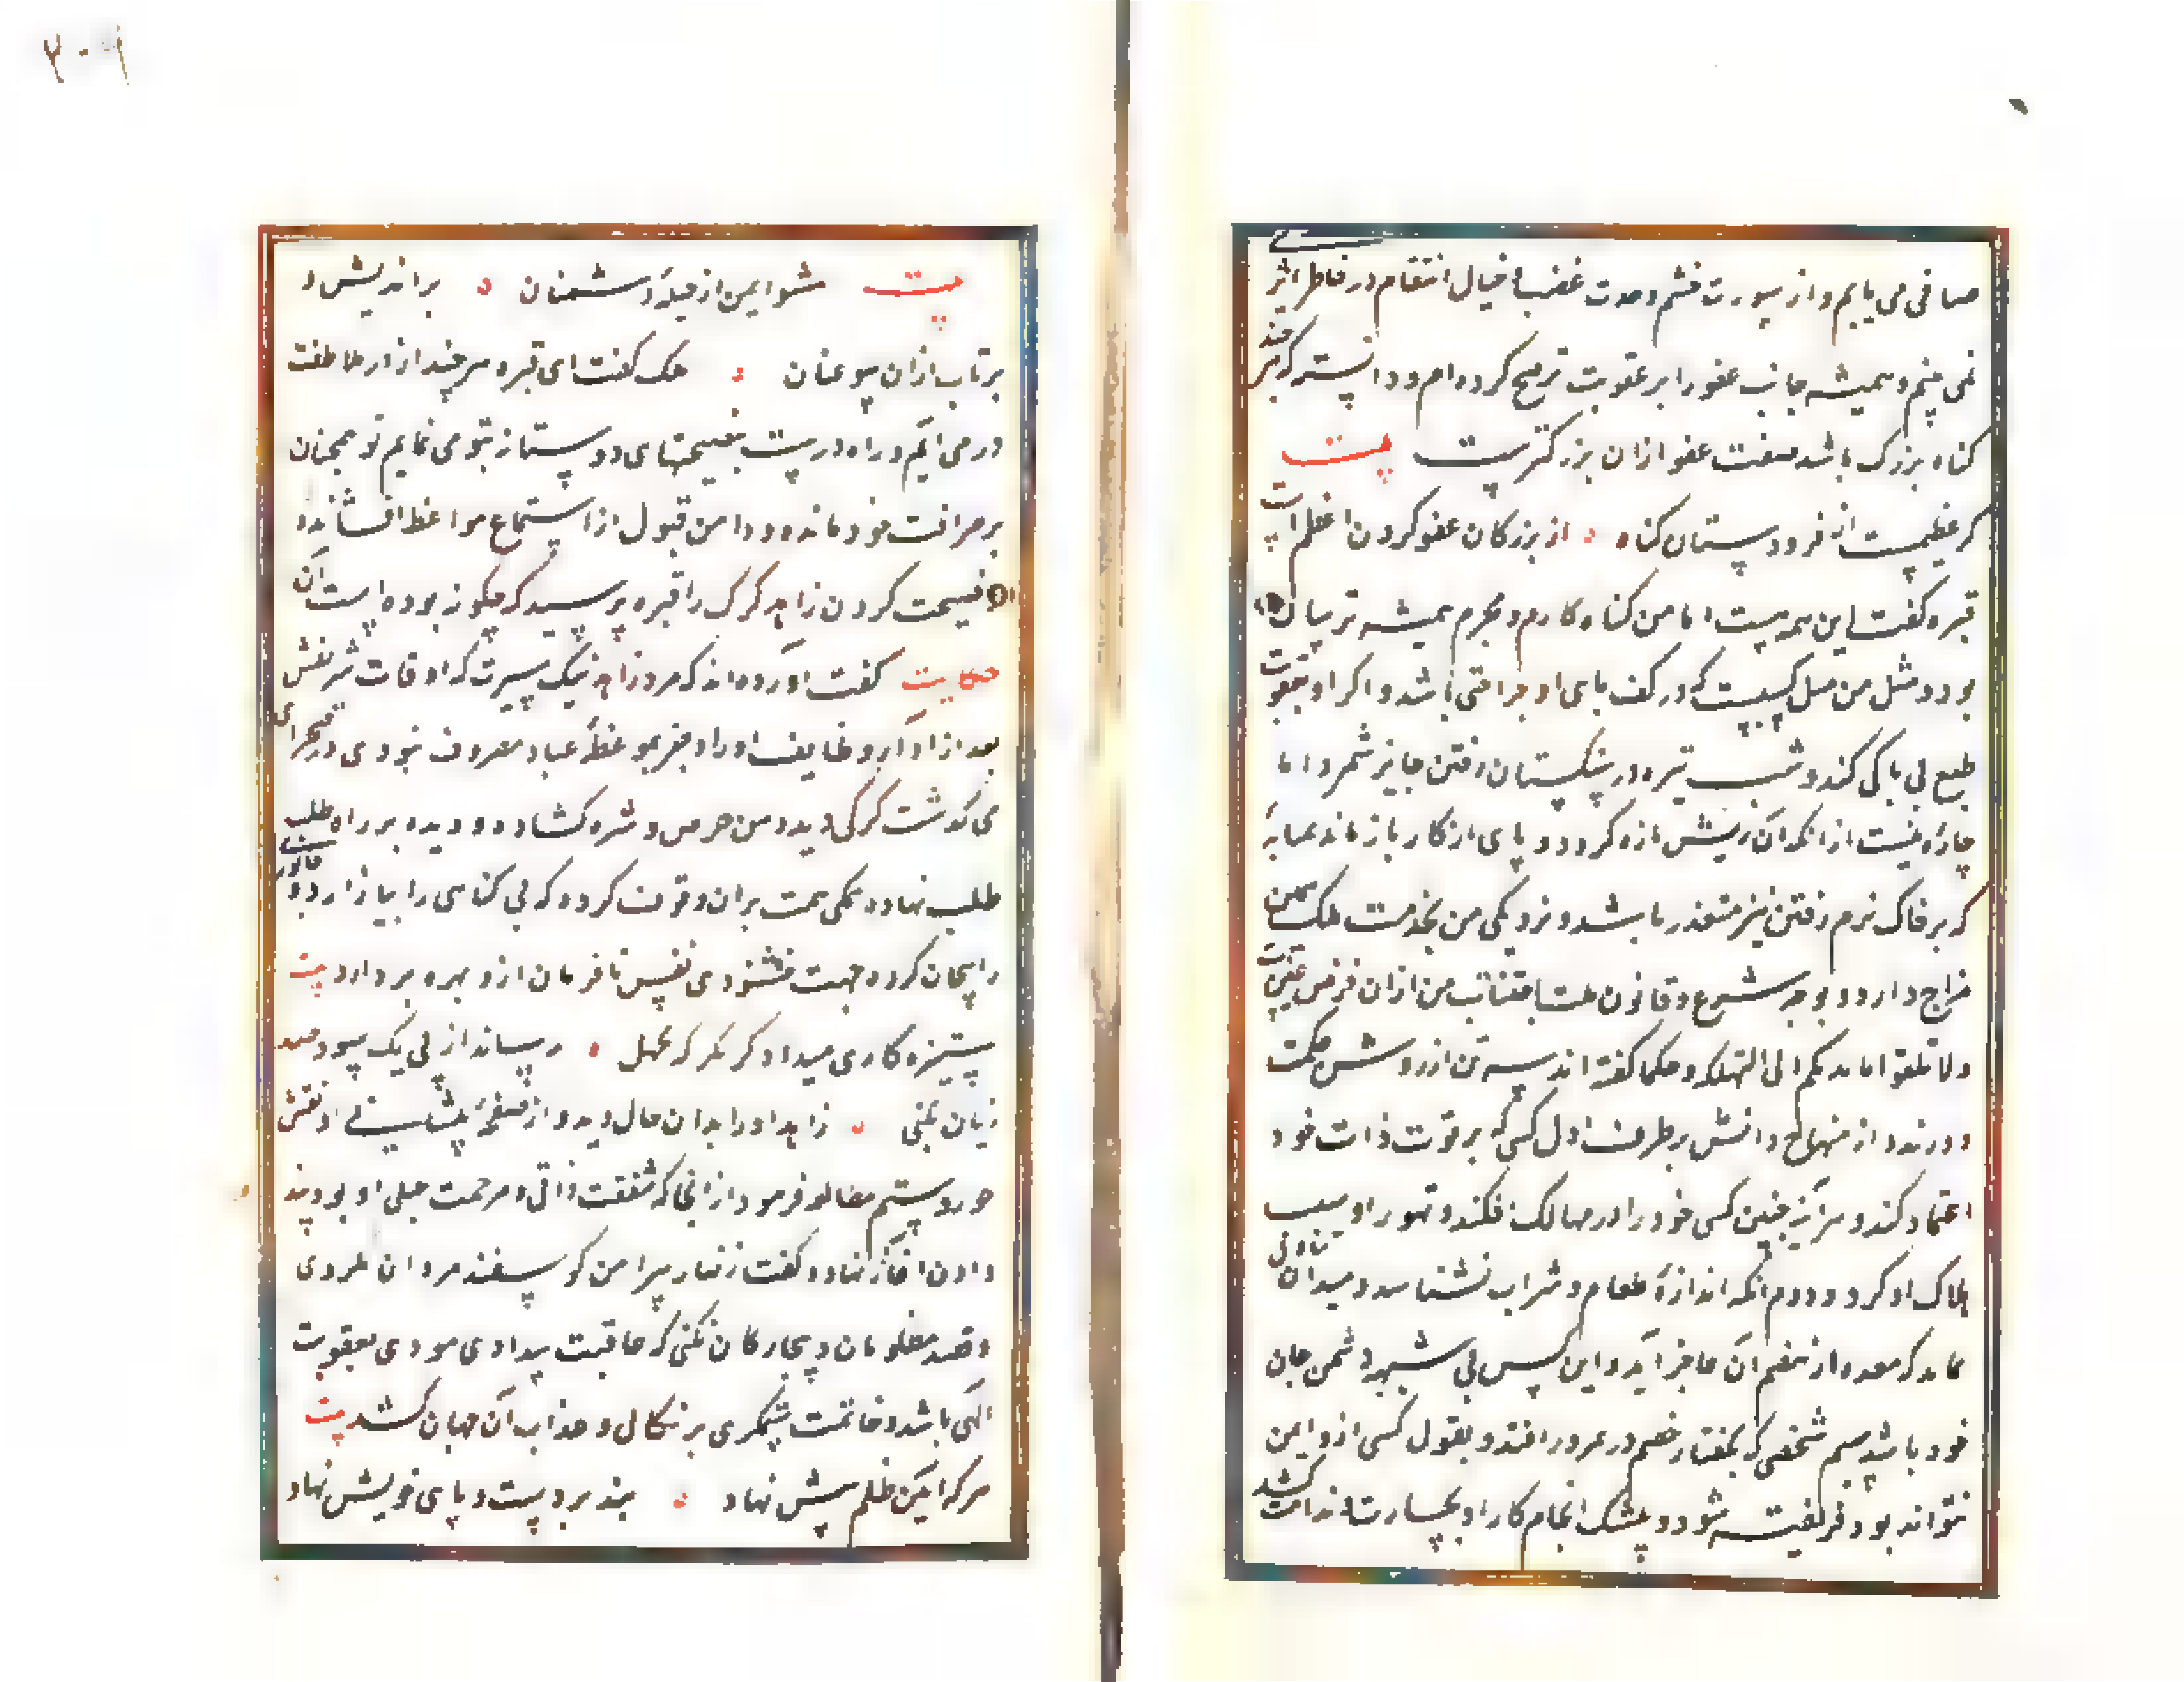 صافی می یابم و از سورت خشم و حدت غضب با خیال انتقام در خاطر اثری
نمی بینم و همیشه جانب عفو را بر عقوبت ترجیح کرده ام و دانسته که هر چند
کناه بزرک باشد صفت عفو ازان بزرکترست بیت
کر عظیمست از فرودستان کناه از بزرکان عفو کردن اعظم است
قبره کفت این همه هست اما من کناه کارم و مجرم همیشه ترسان
بود و مثل من مثل کسیست که در کف پای او جراحتی باشد و اکر او بقوت
طبع بی باکی کند و شب تیره در سنکستان رفتن جایز شمرد اما
چاره نیست از انکه آن ریش تازه کردد و پای از کار باز ماند بمثابهٔ
که بر خاک نرم رفتن نیز متعذر باشد و نزدیکی من بخدمت ملک همین
مزاج دارد و بوجه شرع و قانون ملت اجتناب من ازان فرض عینست
ولا تلقوا بایدیکم الی التهلکه و حکما کفته اند سه تن از روش حکمت
دورند و از منهاج دانش بر طرف اول کسی که بر قوت ذات خود
اعتماد کند و هر آینه چنین کسی خود را در مهالک افکند و تهور او سبب
هلاک او کردد و دوم آنکه اندازهٔ طعام و شراب نشناسد و چندان تناول
نماید که معده از هضم آن عاجز آید و این کس بی شبهه دشمن جان
خود باشد سیم شخصی که بکفتار خصم در غرور افتد و بقول کسی ازو ایمن
نتواند بود فریفته شود و بیشک انجام کار او بخسارت و ندامت کشد
بیت مشو ایمن از حیلهٔ دشمنان براندیش و
برتاب ازان سو عنان ملک کفت ای قبره هر چند از در ملاطفت
در می آیم و راه درست نصیحتهای دوستانه بتو می نمایم تو همچنان
بر صرافت خود مانده و دامن قبول از استماع مواعظ افشانده
نصیحت کردن زاهد کرک را قبره پرسید که چکونه بوده است آن
حکایت کفت آورده اند که مرد زاهد نیک سیرت که اوقات شریفش
بعد از ادای وظایف اوراد جز بموعظهٔ عباد مصروف نبودی در صحرای
می کذشت کرکی دید دهن حرص و شره کشاده و دیده بر راه طلب
طلب نهاده همکی همت بران موقوف کرده که بی کناهی را بیازارد و جانور
را بیجان کرده جهت خشنودی نفس نافرمان ازو بهره بردارد بیت
ستیزه کاری بیدادکر نکر که بجهل رساند از پی یک سود صد
زیان بغنی زاهد او را بدان حال دید و از صفحهٔ پیشانی او نقش
جور و ستم مطالعه فرمود از آنجا که شفقت ذاتی و مرحمت جبلی او بود پند
دادن آغاز نهاد و کفت زنهار پیرامن کوسفند مردان نکردی
و قصد مظلومان و بیچارکان نکنی که عاقبت بیدادی مودی بعقوبت
الهی باشد و خاتمت ستمکری بر نکال و عذاب آن جهان کشد بیت
هر که آیین ظلم پیش نهاد بند بر دست و پای خویش نهاد